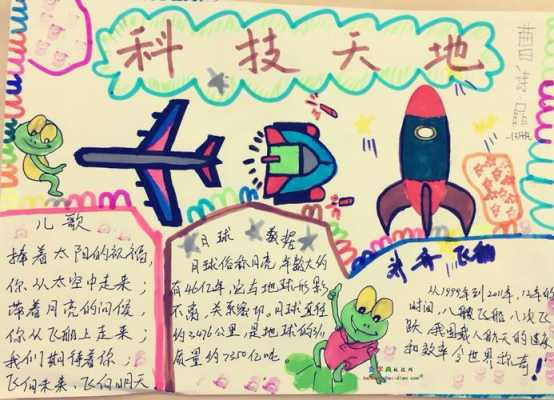 科技天地
儿歌
捧着太阳的祝福,
你从太空中走来;
带着月亮的问候,
你从飞船上走来;
我们期待着你;
飞向未来,飞向明天
月球 数据
月球俗称月亮,年龄大约
有46亿年,它与地球形影
不离,关系密切,月球直径
约3476公里,是地球的3/11
质量约7350亿吨
飞船
从1999年到2011年,12年的
时间,八艘飞船,八次飞
跃,我国载人航天的速度
和效率令世界惊奇!